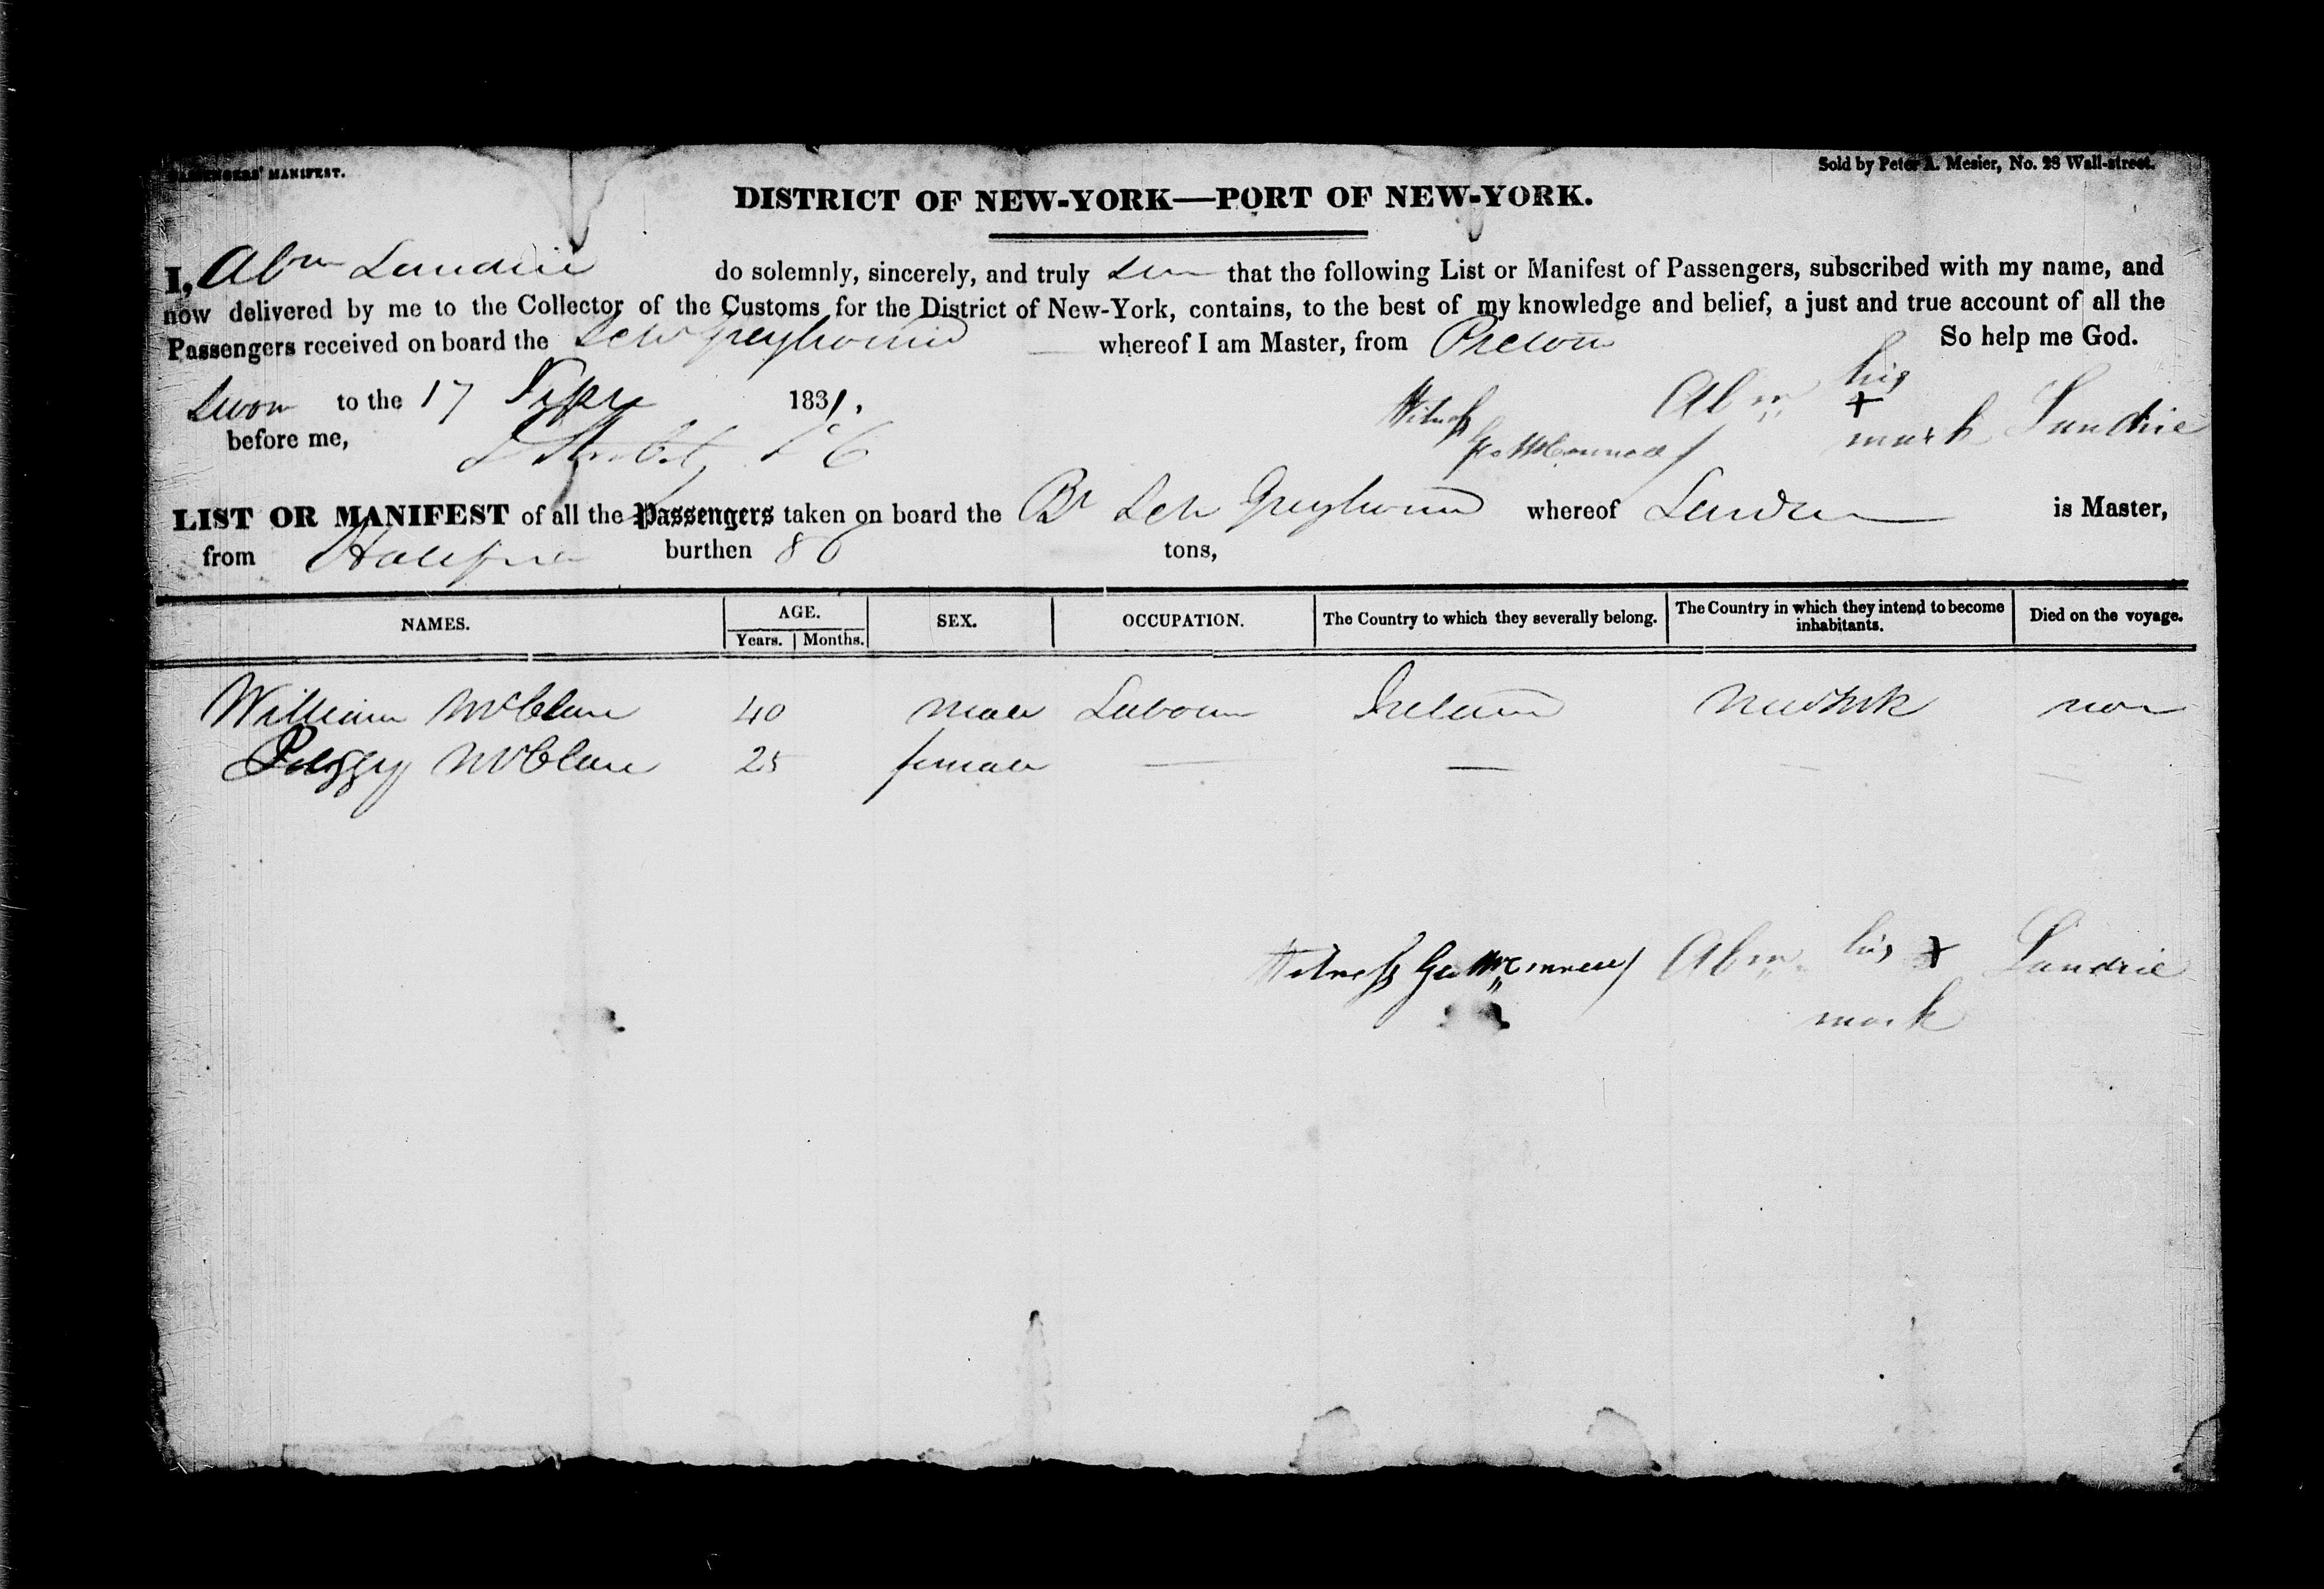 PASSENGERS' MANIFEST.
Sold by Peter A. Mesier, No. 28 Wall-street.
DISTRICT OF NEW-YORK—PORT OF NEW-YORK.
I, Abm Landrie do solemnly, sincerely, and truly that the following List or Manifest of Passengers, subscribed with my name, and
now delivered by me to the Collector of the Customs for the District of New-York, contains, to the best of my knowledge and belief, a just and true account of all the
Passengers received on board the Sch Greyhound whereof I am Master, from So help me God.
Sworn to the 17 1831.
before me,
Witness
Abm his + mark Landrie
LIST OR MANIFEST of all the Passengers taken on board the Br Sch Greyhound whereof is Master,
from Halifax burthen 80 tons,
NAMES. AGE. SEX. OCCUPATION. The Country to which they severally belong. The Country in which they intend to become inhabitants. Died on the voyage.
Years. Months.
William McClure 40 male Labourer Ireland New York non
Peggy McClure 25 female — — — —
Witness Abm his + Landrie
mark